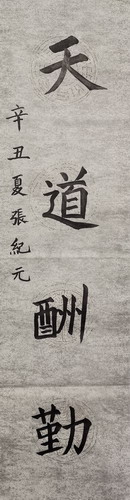 天道酬勤
辛丑夏張紀元